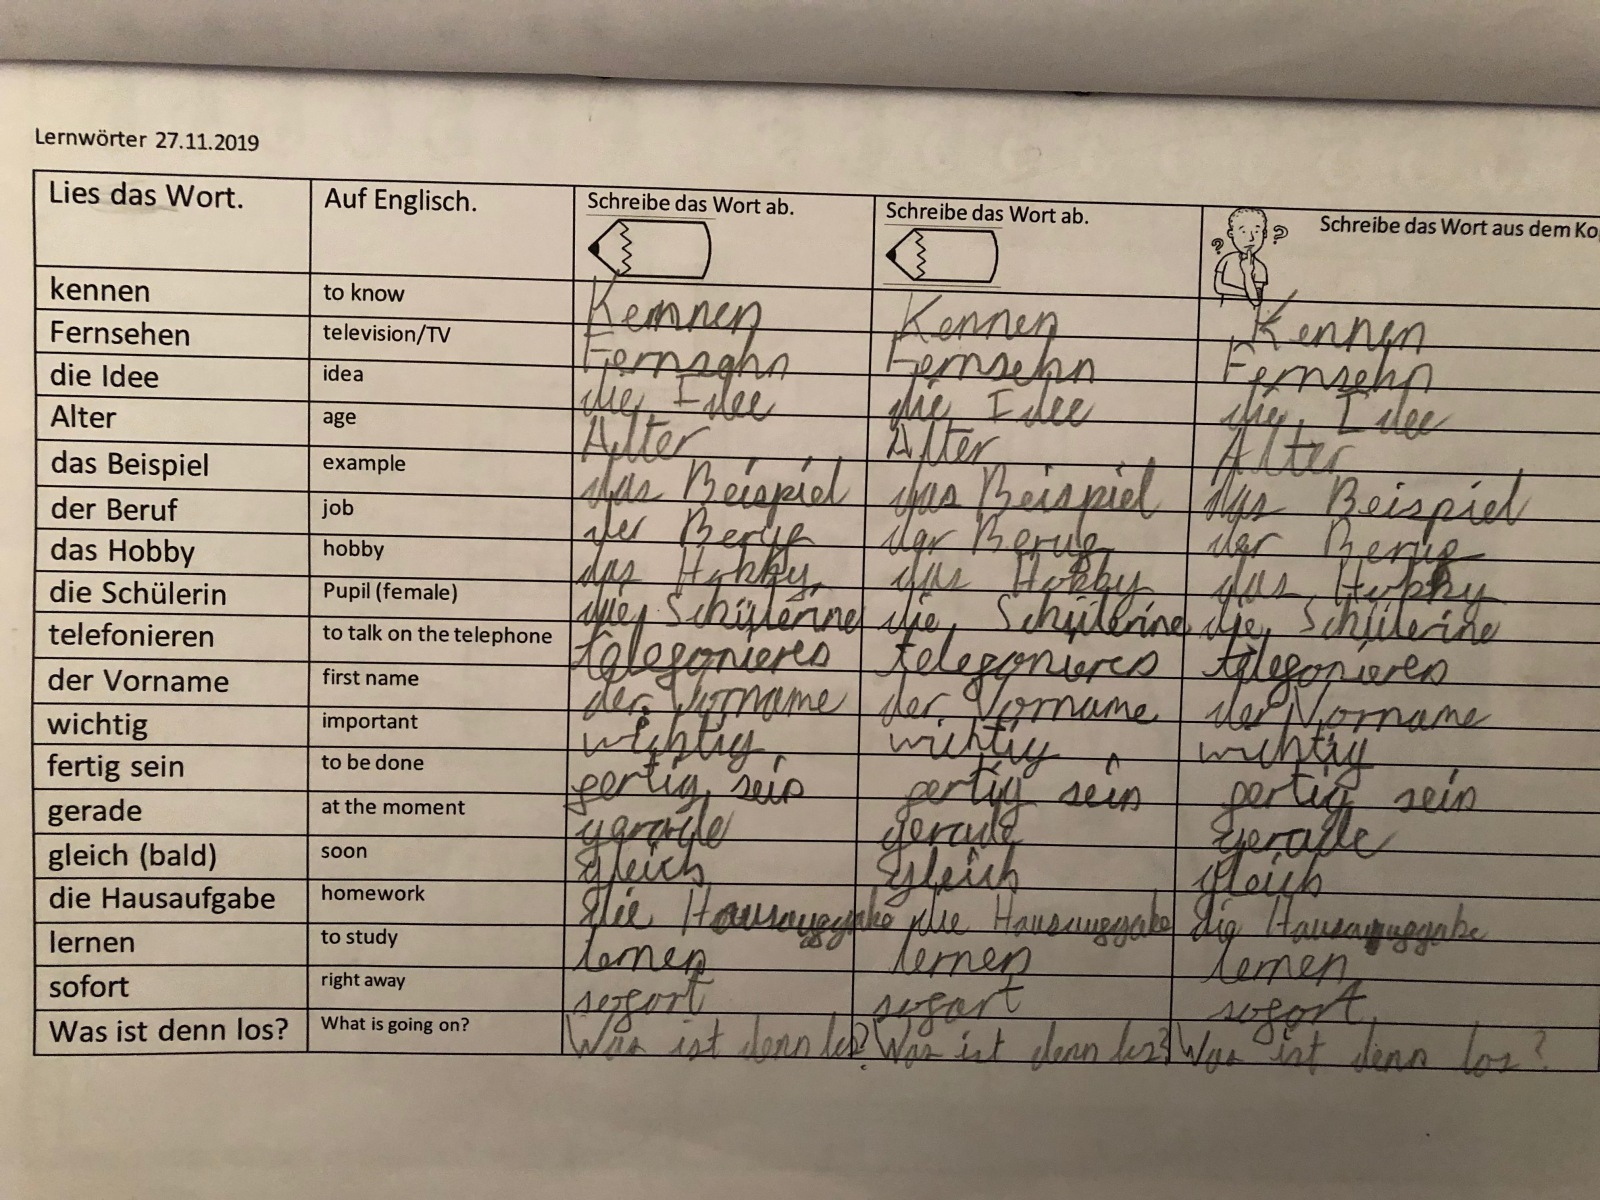 Lernwörter 27.11.2019
Lies das Wort. Auf Englisch. Schreibe das Wort ab. Schreibe das Wort ab. ? ? Schreibe das Wort aus dem Ko
kennen to know Kemnen Kennen Kennen
Fernsehen television/TV Fernsehn Fernsehn Fernsehn
die Idee idea die Idee die Idee die Idee
Alter age Alter Alter Alter
das Beispiel example das Beispiel das Beispiel das Beispiel
der Beruf job der Beruf der Beruf der Beruf
das Hobby hobby das Hobby das Hobby das Hobby
die Schülerin Pupil (female) die Schülerine die Schülerine die Schülerine
telefonieren to talk on the telephone telefonieren telefonieren telefonieren
der Vorname first name der Vorname der Vorname der Vorname
wichtig important wichtig wichtig wichtig
fertig sein to be done fertig sein fertig sein fertig sein
gerade at the moment gerade gerade gerade
gleich (bald) soon gleich gleich gleich
die Hausaufgabe homework die die Hausaufgabe die
lernen to study lernen lernen lernen
sofort right away sofort sofort sofort
Was ist denn los? What is going on? Was ist denn los? Was ist denn los? Was ist denn los?